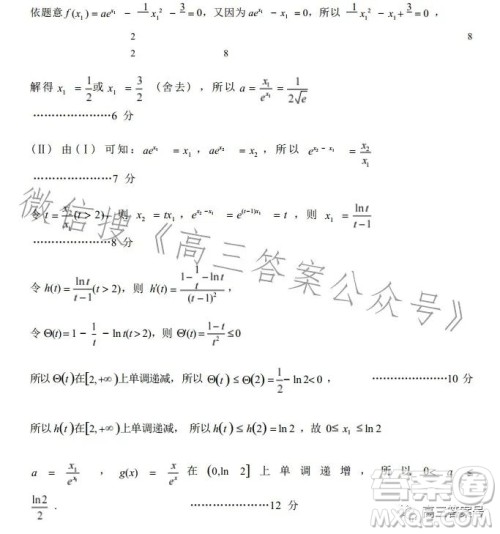 依题意 f(x₁) = ae^{x₁} − 1/2 x₁² − 3/8 = 0，又因为 ae^{x₁} − x₁ = 0，所以 1/2 x₁² − x₁ + 3/8 = 0，
解得 x₁ = 1/2 或 x₁ = 3/2（舍去），所以 a = x₁/e^{x₁} = 1/(2√e)
…………………6 分
(II) 由(I) 可知：ae^{x₁} = x₁，ae^{x₂} = x₂，所以 e^{x₂−x₁} = x₂/x₁
…………………7 分
令 t = x₂/x₁ (t > 2)，则 x₂ = tx₁，e^{x₂−x₁} = e^{(t−1)x₁} = t，则 x₁ = ln t/(t−1)
…………………8 分
令 h(t) = ln t/(t−1) (t > 2)，则 h′(t) = (1 − 1/t − ln t)/(t−1)²，
令 Θ(t) = 1 − 1/t − ln t(t > 2)，则 Θ′(t) = (1−t)/t² ≤ 0
所以 Θ(t) 在[2,+∞)上单调递减，所以 Θ(t) ≤ Θ(2) = 1/2 − ln2 < 0， …………………10 分
所以 h(t) 在[2,+∞)上单调递减，所以 h(t) ≤ h(2) = ln 2，故 0 ≤ x₁ ≤ ln 2
a = x₁/e^{x₁}，g(x) = x/e^x 在 (0,ln 2] 上单调递增，所以 0 < a ≤
ln2/2． …………………12 分
微信搜《高三答案公众号》
答案圈
高三答案号